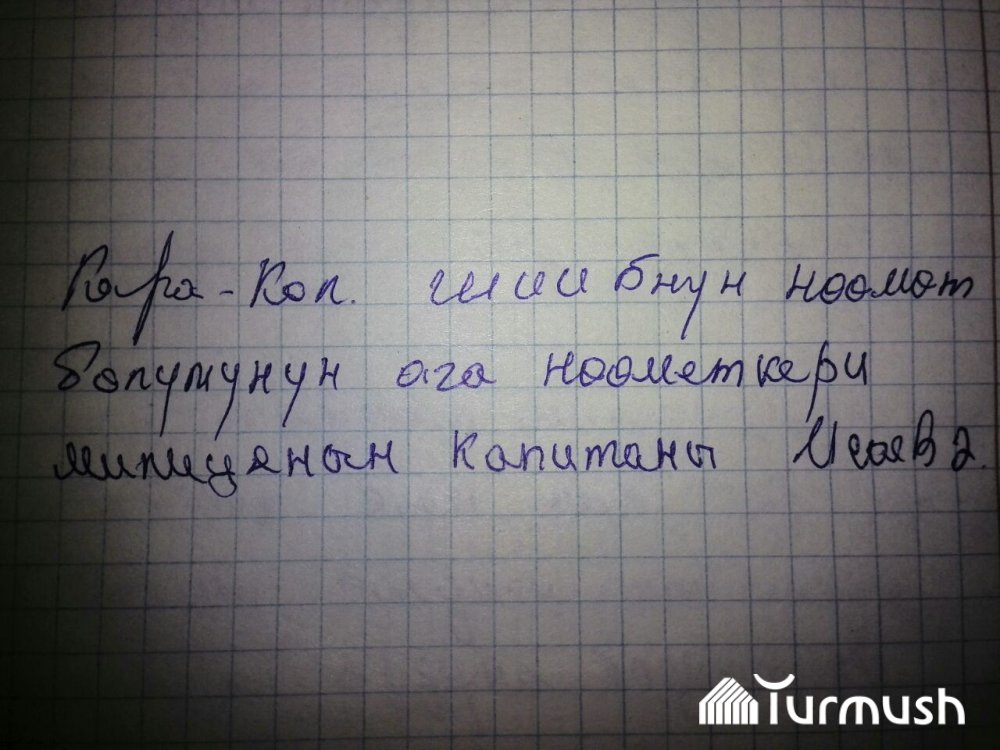 Кара-Кол. ШИИБнун нөөмөт
бөлүмүнүн ага нөөметкери
милициянын капитаны Исаев Э.
Turmush